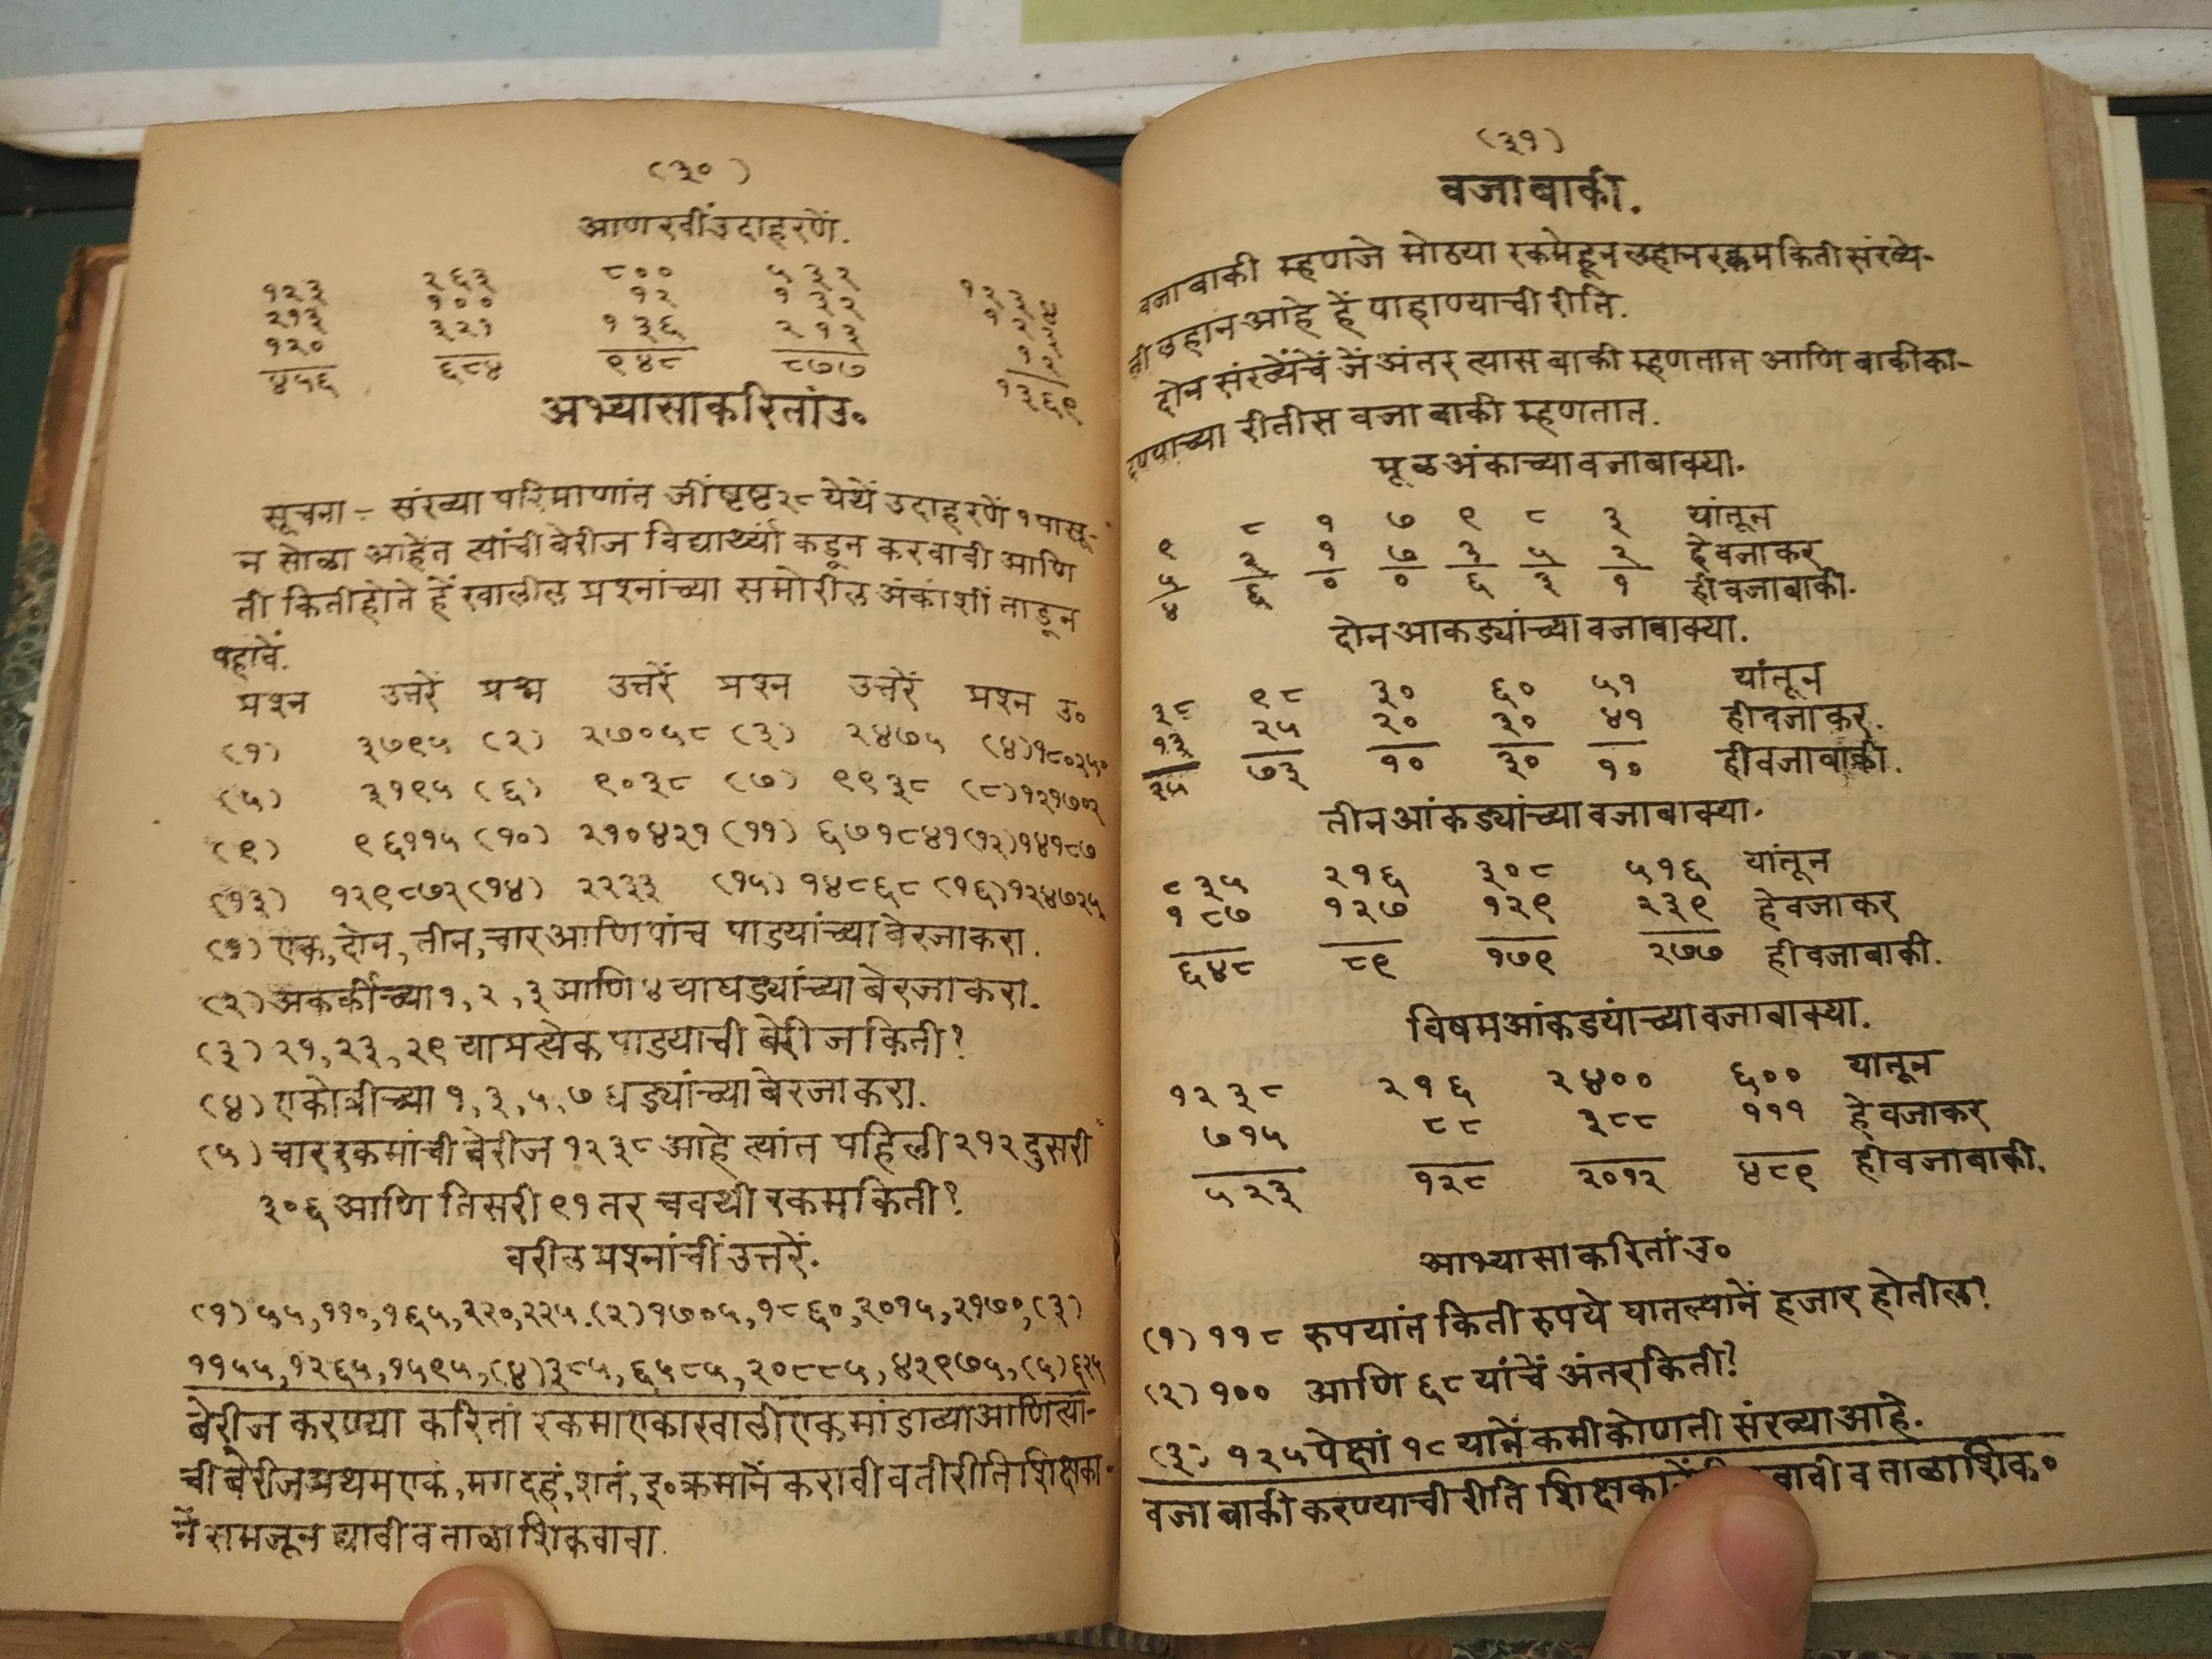 (३०)
आणखीं उदाहरणें.
१२३ २६३ ८०० ५३२ १२३४
२१३ १०० १२ १३२ १२३
१२० ३२१ १३६ २१३ १२
४५६ ६८४ ९४८ ८७७ १३६९
अभ्यासाकरितां उ०
सूचना - संख्या परिमाणांत जीं पृष्ट २८ येथें उदाहरणें १ पासू-
न सोळा आहेत त्यांची बेरीज विद्यार्थ्या कडून करवावी आणि
ती किती होते हें खालील प्रश्नांच्या समोरील अंकांशीं ताडून
पहावें.
प्रश्न उत्तरें प्रश्न उत्तरें प्रश्न उत्तरें प्रश्न उ०
(१) ३७९५ (२) २७०५८ (३) २४७५ (४) १८०२५०
(५) ३१९५ (६) ९०३८ (७) ९९३८ (८) १२१७०२
(९) ९६११५ (१०) २१०४२१ (११) ६७१८४१ (१२) १४१८७
(१३) १२९८७२ (१४) २२३३ (१५) १४८६८ (१६) १२४७२५
(१) एक, दोन, तीन, चार आणि पांच पाडयांच्या बेरजा करा.
(२) अकर्कीच्या १, २, ३ आणि ४ या घड्यांच्या बेरजा करा.
(३) २१, २३, २९ या प्रत्येक पाडयाची बेरीज किती?
(४) एकोत्रीच्या १, ३, ५, ७ धड्यांच्या बेरजा करा.
(५) चार रकमांची बेरीज १२३८ आहे त्यांत पहिली २१२ दुसरी
३०६ आणि तिसरी ९१ तर चवथी रकम किती?
वरील प्रश्नांचीं उत्तरें.
(१) ५५, ११०, १६५, २२०, २२५. (२) १७०५, १८६०, २०१५, २१७०, (३)
११५५, १२६५, १५९५, (४) ३८५, ६५८५, २०८८५, ४२९७५, (५) ६२५
बेरीज करण्या करितां रकमा एकाखाली एक मांडाव्या आणि त्यां-
ची बेरीज प्रथम एकं, मग दहं, शतं, इ० क्रमानें करावी व ती रीति शिक्षका-
नें समजून द्यावी व ताळा शिकवावा.
(३१)
वजाबाकी.
वजाबाकी म्हणजे मोठया रकमेहून लहान रक्कम किती संख्ये-
नी लहान आहे हें पाहाण्याची रीति.
दोन संख्येंचें जें अंतर त्यास बाकी म्हणतात आणि बाकी का-
ढण्याच्या रीतीस वजाबाकी म्हणतात.
मूळ अंकाच्या वजाबाक्या.
९ ८ १ ७ ९ ८ ३ यांतून
५ २ १ ७ ३ ५ २ हे वजा कर
४ ६ ० ० ६ ३ १ ही वजाबाकी.
दोन आकड्यांच्या वजाबाक्या.
३८ ९८ ३० ६० ५१ यांतून
१३ २५ २० ३० ४१ ही वजा कर.
२५ ७३ १० ३० १० ही वजाबाकी.
तीन आंकड्यांच्या वजाबाक्या.
८३५ २१६ ३०८ ५१६ यांतून
१८७ १२७ १२९ २३९ हे वजा कर
६४८ ८९ १७९ २७७ ही वजाबाकी.
विषम आंकडयांच्या वजाबाक्या.
१२३८ २१६ २४०० ६०० यातून
७१५ ८८ ३८८ १११ हे वजा कर
५२३ १२८ २०१२ ४८९ ही वजाबाकी.
आभ्यासाकरितां उ०
(१) ११८ रुपयांत किती रुपये घातल्यानें हजार होतील?
(२) १०० आणि ६८ यांचें अंतर किती?
(३) १२५ पेक्षां १८ यानें कमी कोणती संख्या आहे.
वजाबाकी करण्याची रीति शिक्षकानें व ताळा शिक०